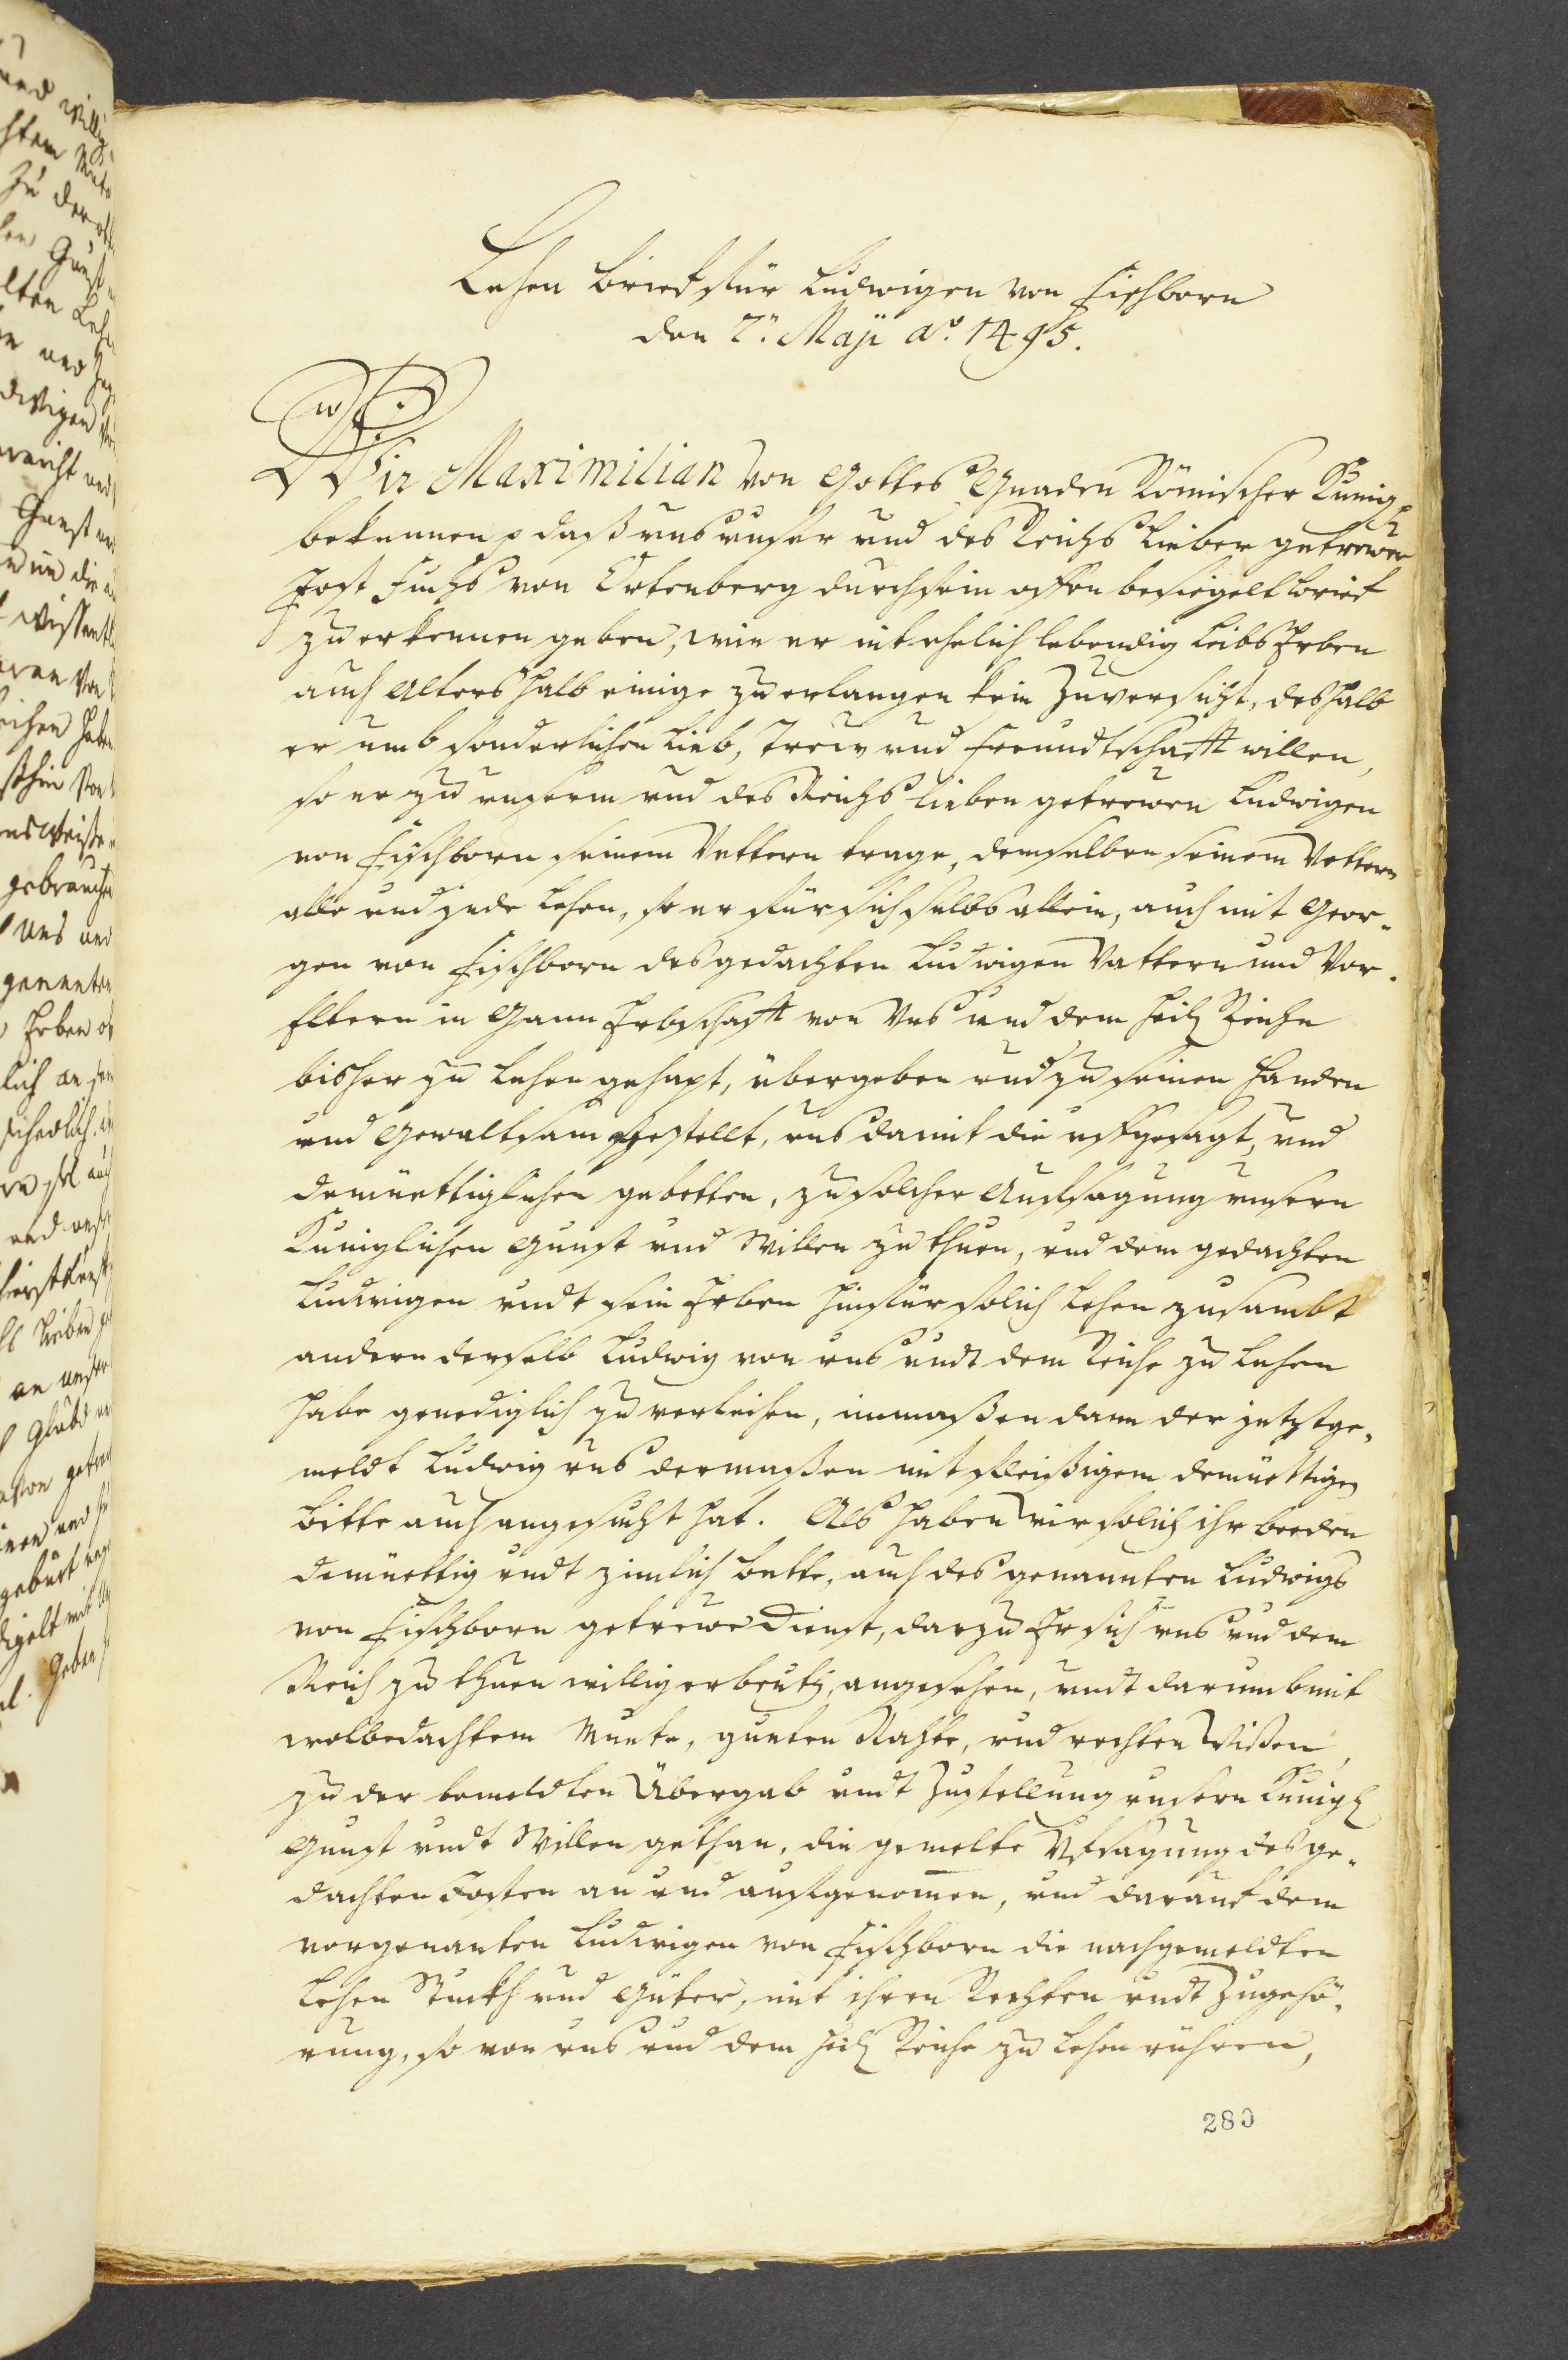 Lehen brieff für Ludwigen von Fischborn
den 2.n Maji ao. 1495.
Wir Maximilian von Gottes Gnaden Römischer Kunig p
bekennen p daß uns unser und des Reichs Lieber getrewer
Jost Fuchs von Ortenberg durch sein offen besiegelt brieff
zu erkennen geben, wie er nit ehelich lebendig Leibs Erben
auch Alters halb einige zu erlangen kein Zuversicht, deshalb
er umb sonderlichen Lieb, Trew und Freundtschafft willen,
so er zu unserm und des Reichs Lieben getrewen Ludwigen
von Fischborn seinem Vettern trage, demselben seinem Vettern
alle und jede Lehen, so er für sich selbs allein, auch mit Geor-
gen von Fischborn des gedachten Ludwigen Vattern und Vor-
Eltern in Gann Erbschafft von Uns und dem Heil Reiche
bisher zu Lehen gehapt, übergeben und zu seinen Handen
und Gewaltsam gestellt, uns damit die uffgesagt, und
demüettiglichen gebetten, zu solcher Auffsagung unsern
Kuniglichen Gunst und Willen zu thuen, und dem gedachten
Ludwigen undt sein Erben hinfür solich Lehen zusambt
andern derselb Ludwig von uns undt dem Reiche zu Lehen
habe genediglich zu verleihen, inmaßen dann der jetztge-
meldt Ludwig uns dermaßen mit fleißigem demüettigen
bitte auch angesucht hat. Als haben wir solich ihr beeden
demüettig undt zimlich bette, auch des genannten Ludwigs
von Fischborn getrewe Dienst, darzu Er sich uns und dem
Reich zu thuen willig erbeutig, angesehen, undt darumb mit
wolbedachtem Muete, gueten Rahte, und rechten Wißen,
zu der bemeldten Übergab undt Zustellung unsern Kunigl
Gunst undt Willen gethan, die gemelte Uffsagung des ge-
dachten Josten an und auffgenomen, und darauf dem
vorgenanten Ludwigen von Fischborn die nachgemeldten
Lehen Stuckh und Güter, mit ihren Rechten undt Zugehö-
rung, so von uns und dem Heil Reiche zu Lehen rühren,
280